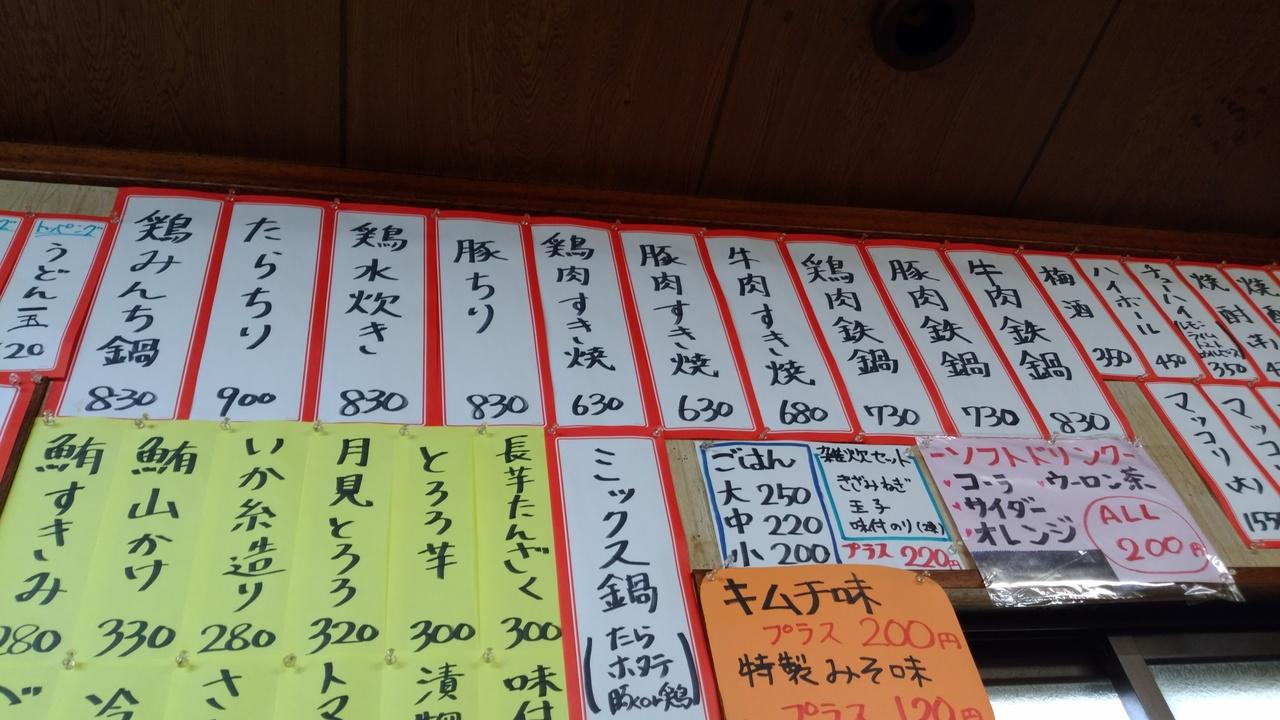 トッピング
うどん一玉
鶏みんち鍋
830
たらちり
900
鶏水炊き
830
豚ちり
830
鶏肉すき焼
630
豚肉すき焼
630
牛肉すき焼
680
鶏肉鉄鍋
730
豚肉鉄鍋
730
牛肉鉄鍋
830
梅酒
ハイボール
350
チューハイ
450
焼酎
350
マッコリ
マッコリ(大)
鮪すきみ
280
鮪山かけ
330
いか糸造り
280
月見とろろ
320
とろろ芋
300
長芋たんざく
300
冷
さ
トマ
漬物
味付
ミックス鍋
(たら
ホタテ
豚or鶏)
ごはん
大 250
中 220
小 200
雑炊セット
きざみねぎ
玉子
味付のり(2束)
プラス 220円
ーソフトドリンクー
コーラ ウーロン茶
サイダー
オレンジ
ALL
200円
キムチ味
プラス 200円
特製みそ味
プラス 120円